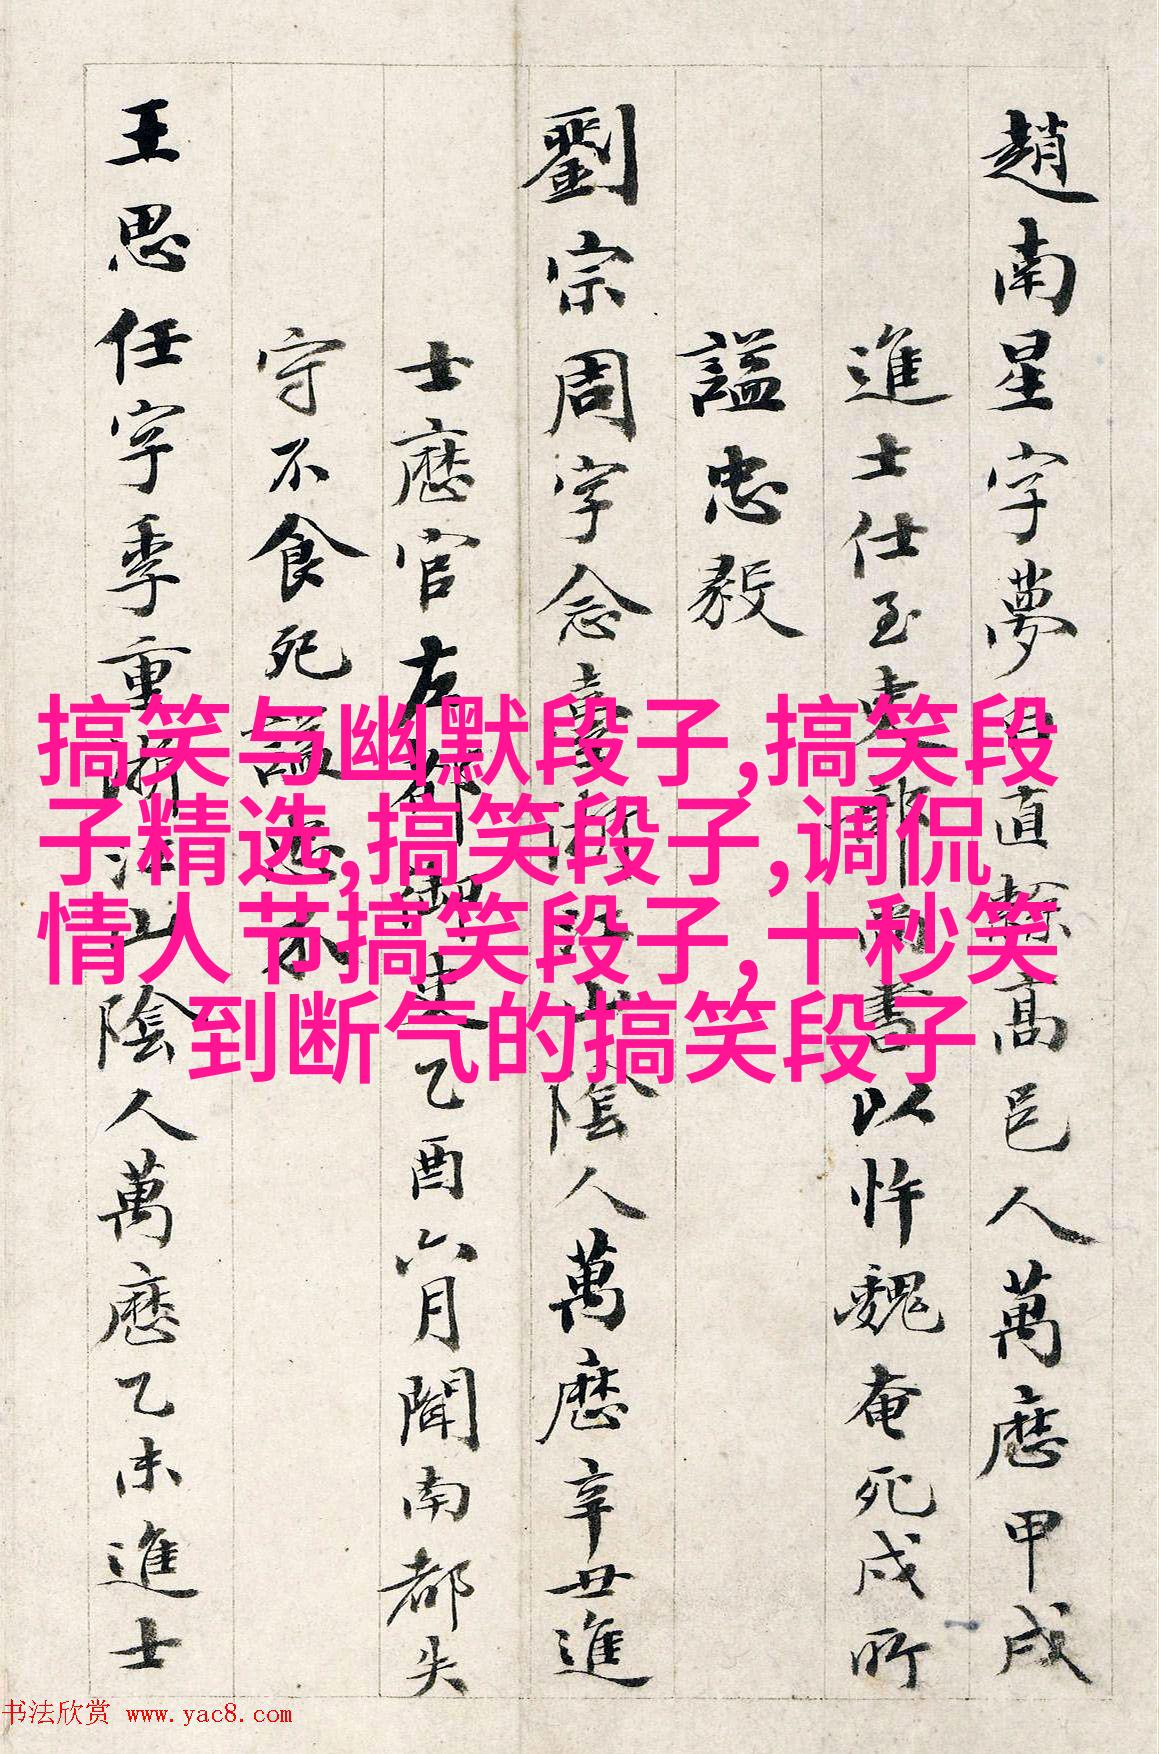 趙南星字夢白直隸高邑人萬曆甲戌
進士仕至吏部尚書以忤魏奄死戍所
謚忠毅
劉宗周字念臺浙江山陰人萬曆辛丑進
士歷官左都御史乙酉六月聞南都失
守不食死謚忠介
王思任字季重浙江山陰人萬曆乙未進士
搞笑与幽默段子,搞笑段
子精选,搞笑段子,调侃
情人节搞笑段子,十秒笑
到断气的搞笑段子
书法欣赏 www.yac8.com